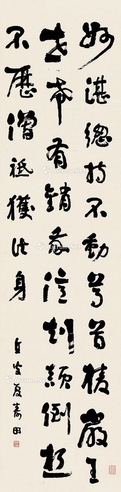 妙湛總持不動尊首楞嚴王
世希有銷我億劫顛倒想
不歷僧祇獲法身
直心夏壽田